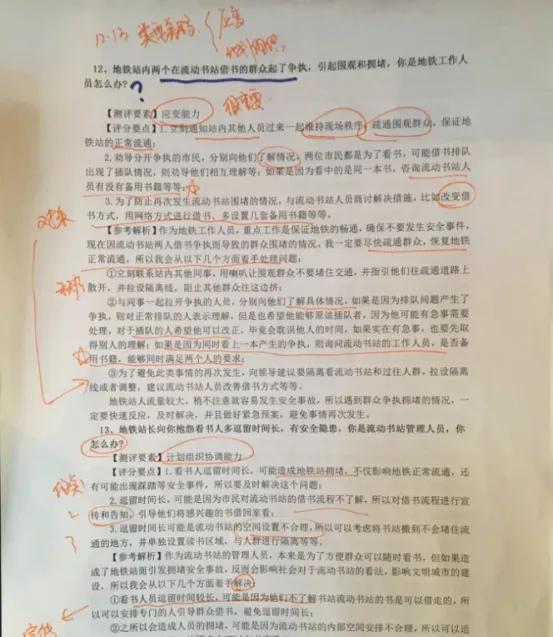 12、地铁站内两个在流动书站借书的群众起了争执，引起围观和拥堵，你是地铁工作人
员怎么办？
【测评要素】应变能力
【评分要点】1.立刻通知站内其他人员过来一起维持现场秩序，疏通围观群众，保证地
铁站的正常流通；
2.劝导分开争执的市民，分别向他们了解情况，两位市民都是为了看书，可能借书排队
出现了插队情况，则劝导他们相互理解；如果是因为看中的是同一本书，咨询流动书站人
员有没有备用书籍等等；
3.为了防止再次发生流动书站围堵的情况，与流动书站人员商讨解决措施，比如改变借
书方式，用网络方式进行借书，多设置几套备用书籍等等。
【参考解析】作为地铁工作人员，重点工作是保证地铁的畅通，确保不要发生安全事件，
现在因流动书站两人借书争执而导致的群众围堵的情况，我一定要尽快疏通群众，恢复地铁
正常流通，所以我会从以下几个方面着手处理问题：
①立刻联系站内其他同事，用喇叭让围观群众不要堵住交通，并指引他们往疏通道路上
散开，并拉设隔离线，阻止其他群众往这边挤；
②与同事一起拉开争执的人员，分别向他们了解具体情况，如果是因为排队问题产生了
争执，则对正常排队的人表示理解，但是也希望他能够原谅插队者，因为他可能有急事需要
处理，对于插队的人希望他可以改正，毕竟会耽误他人的时间，如果实在有急事，也要先取
得别人的理解；如果是因为同时看上一本产生的争执，则询问流动书站的工作人员，是否备
用书籍，能够同时满足两个人的要求；
③为了避免此类事情的再次发生，向领导建议要隔离看流动书站和过往人群，拉设隔离
线或者调整，建议流动书站人员改善借书方式等等。
地铁站人流量较大，稍不注意就容易发生安全事故，所以遇到群众争执拥堵的情况，一
定要快速反应，及时解决，并且做好紧急预案，避免事情再次发生。
13、地铁站长向你抱怨看书人多逗留时间长，有安全隐患，你是流动书站管理人员，你
怎么办？
【测评要素】计划组织协调能力
【评分要点】1.看书人逗留时间长，可能造成地铁站拥堵，不仅影响地铁正常流通，还
有可能出现踩踏等安全事件，所以要及时解决这个问题；
2.逗留时间长，可能是因为市民对流动书站的借书流程不了解，所以对借书流程进行宣
传和告知，引导他们将感兴趣的书借回家看；
3.逗留时间长可能是流动书站的空间设置不合理，所以可以考虑将书站搬到不会堵住流
通的地方，并单独设置读书区域，与人群进行隔离等等。
【参考解析】作为流动书站的管理人员，本来是为了方便群众可以随时看书，但如果造
成了地铁站而引发拥堵安全事故，反而会影响社会对于流动书站的看法，影响文明城市的建
设，所以我会从以下几个方面着手解决：
①看书人员逗留时间较长，可能是因为他们不了解书站流动书站的书是可以借走的，所
以可以安排专门的人引导群众借书，避免逗留时间长；
②之所以会造成人员的拥堵，可能是因为流动书站的内部空间安排不合理，所以可以适